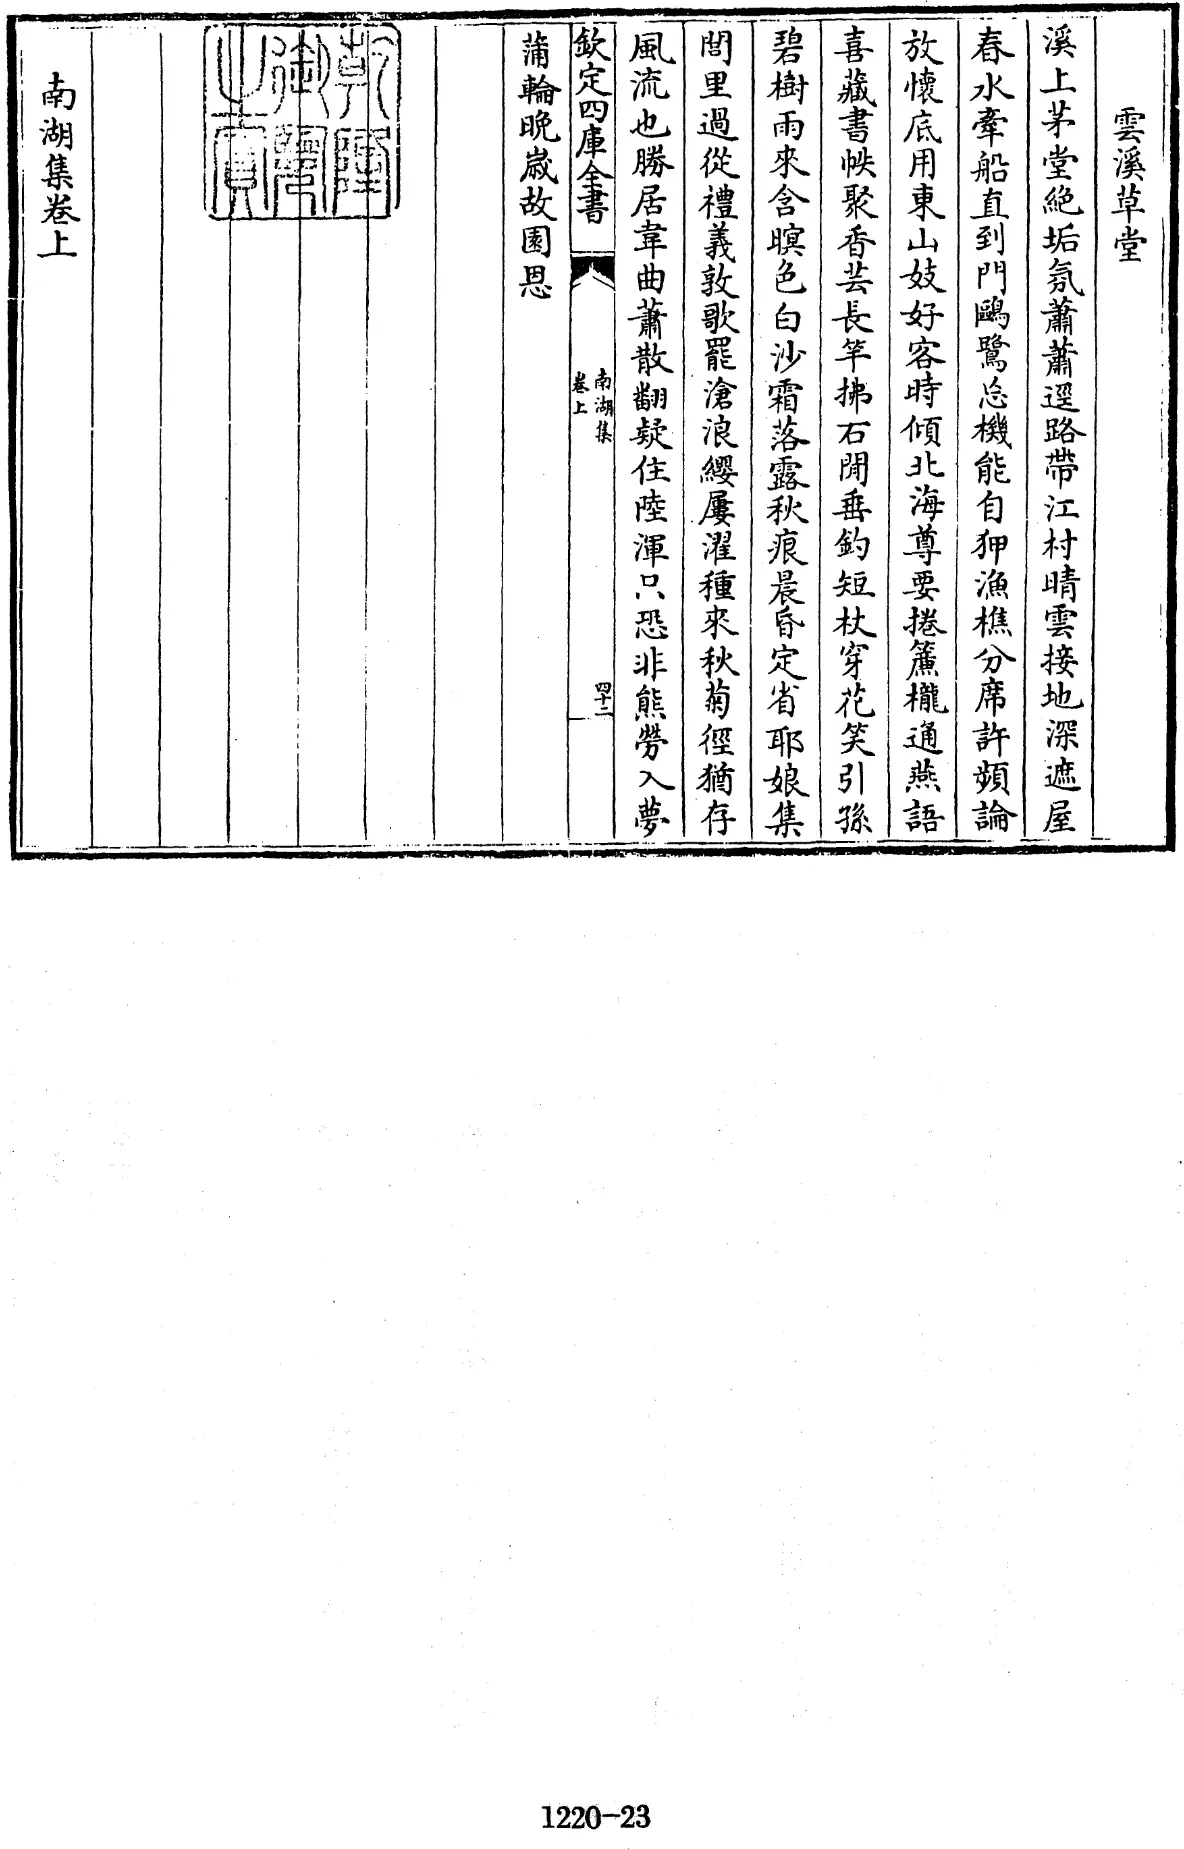 雲溪草堂
溪上茅堂絶垢氛蕭蕭逕路帶江村晴雲接地深遮屋
春水牽船直到門鷗鷺忘機能自狎漁樵分席許頻論
放懷底用東山妓好客時傾北海尊要捲簾櫳通燕語
喜藏書帙聚香芸長竿拂石閒垂釣短杖穿花笑引孫
碧樹雨來含暝色白沙霜落露秋痕晨昏定省耶娘集
閭里過從禮義敦歌罷滄浪纓屢濯種來秋菊徑猶存
風流也勝居韋曲蕭散翻疑住陸渾只恐非熊勞入夢
欽定四庫全書
南湖集
卷上
四十二
蒲輪晚嵗故園恩
乾隆
御覽
之寶
南湖集卷上
1220-23